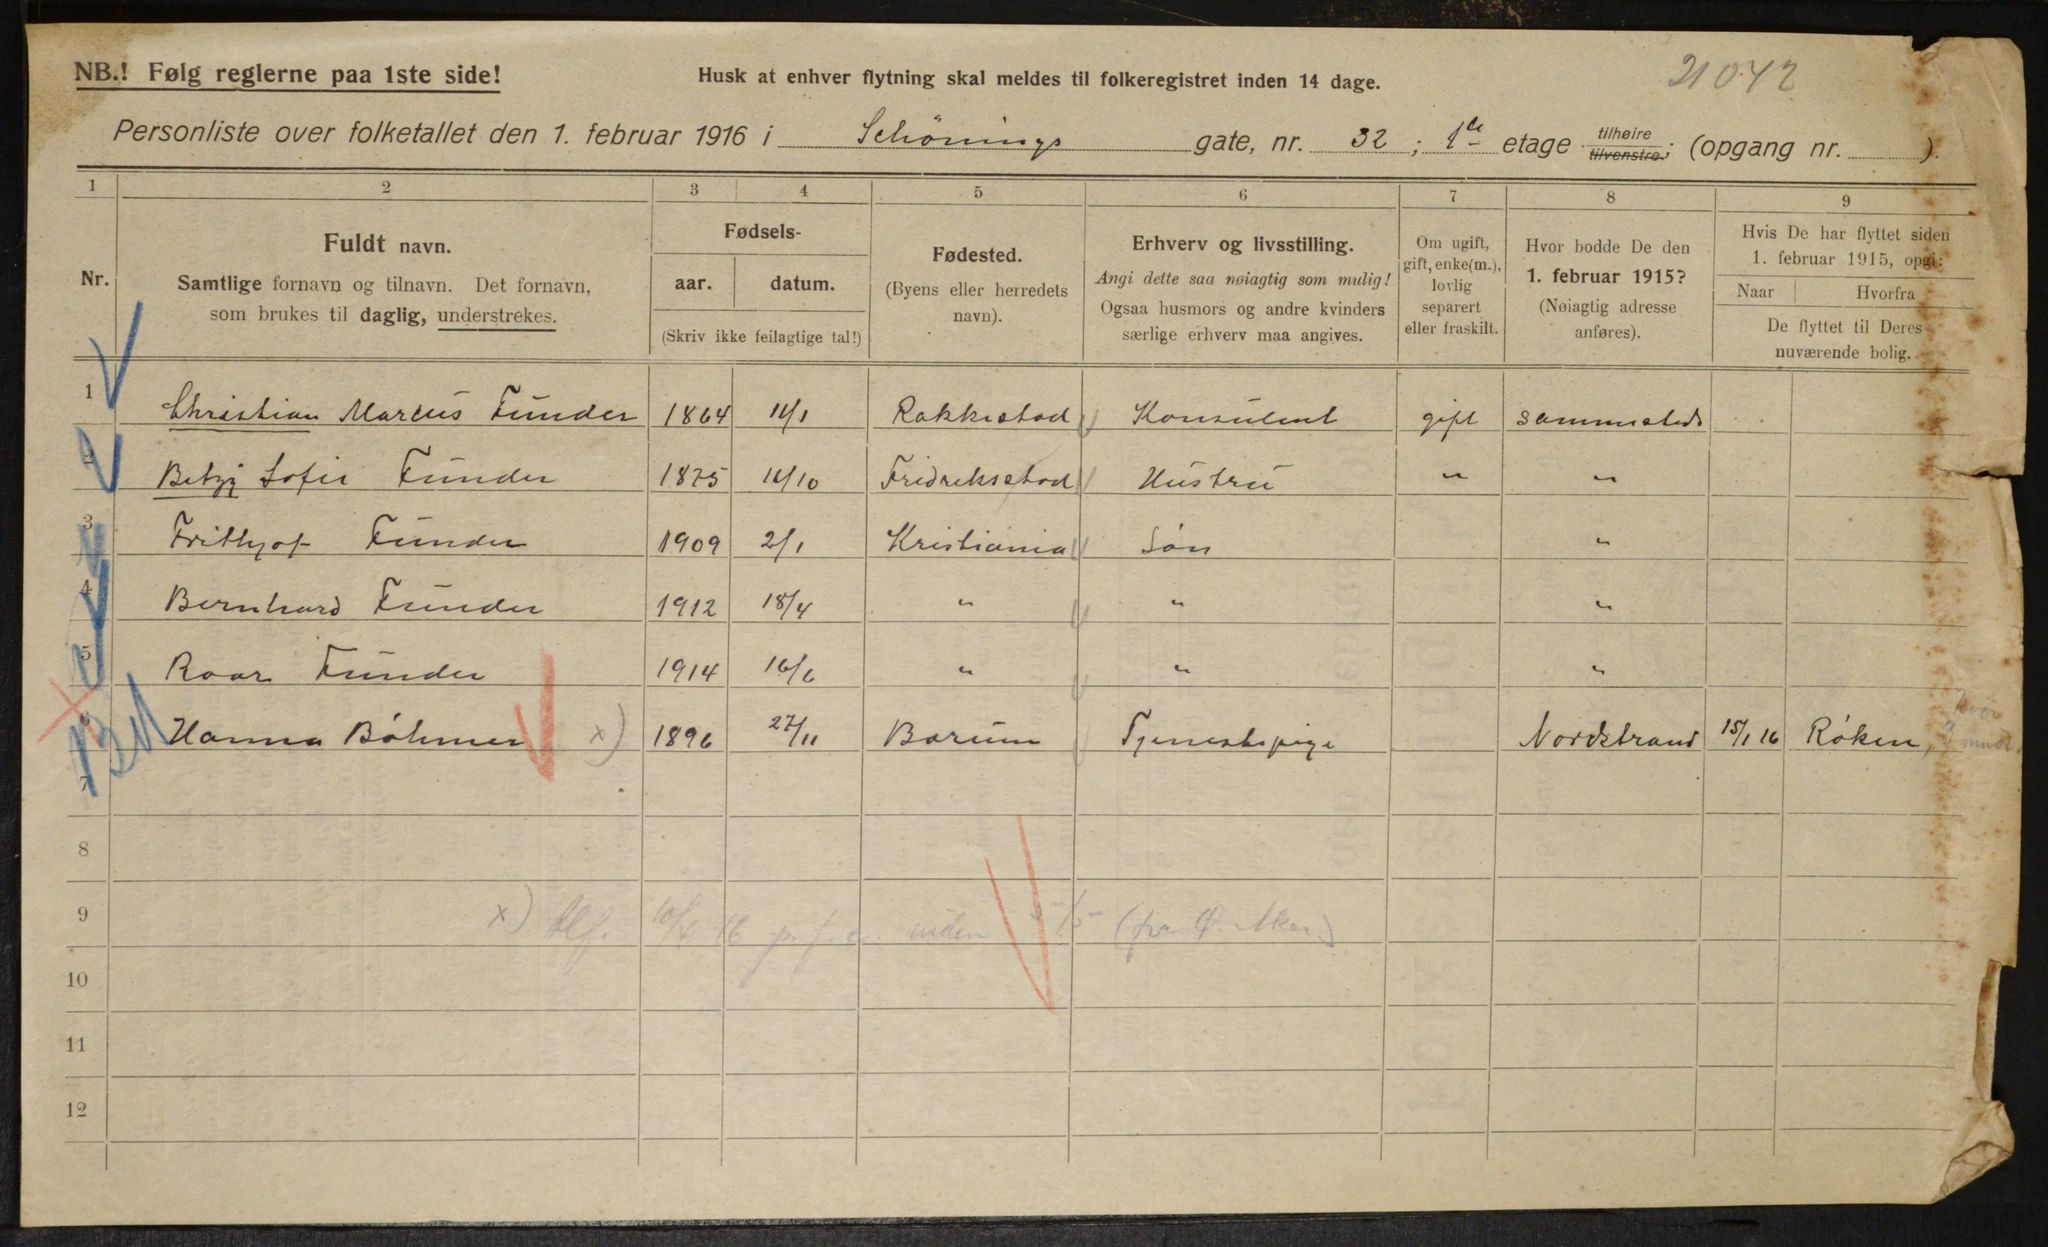 21042
NB.! Følg reglerne paa 1ste side!
Husk at enhver flytning skal meldes til folkeregistret inden 14 dage.
Personliste over folketallet den 1. februar 1916 i Schønings gate, nr. 32; 1ste etage tilhøire tilvenstre; (opgang nr. ).
1 2 3 4 5 6 7 8 9
Nr.
Fuldt navn.
Samtlige fornavn og tilnavn. Det fornavn,
som brukes til daglig, understrekes.
Fødsels-
aar. datum.
(Skriv ikke feilagtige tal!)
Fødested.
(Byens eller herredets
navn).
Erhverv og livsstilling.
Angi dette saa nøiagtig som mulig!
Ogsaa husmors og andre kvinders
særlige erhverv maa angives.
Om ugift,
gift, enke(m.),
lovlig
separert
eller fraskilt.
Hvor bodde De den
1. februar 1915?
(Nøiagtig adresse
anføres).
Hvis De har flyttet siden
1. februar 1915, opgi:
Naar Hvorfra
De flyttet til Deres
nuværende bolig.
1 Christian Marcus Funder 1864 11/1 Rakkestad Konsulent gift sammesteds
2 Betzy Sofie Funder 1875 11/10 Fridrekstad Hustru " "
3 Frithjof Funder 1909 2/1 Kristiania Søn "
4 Bernhard Funder 1912 18/4 " " "
5 Roar Funder 1914 16/6 " " "
6 Hanna Bøhmer x) 1896 27/11 Barum Tjenestepige Nordstrand 15/1 16 Røken,
7
8
9 x) 10/4 16 inden 5/5 (fra Ø. Aker)
10
11
12